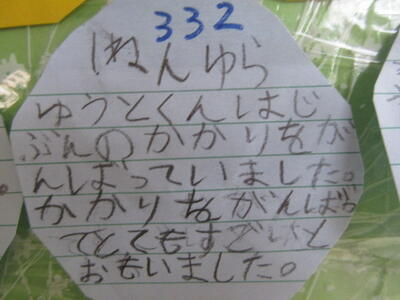 332
1ねんゆら
ゆうとくんはじ
ぶんのかかりをが
んばっていました。
かかりをがんばっ
てとてもすごいと
おもいました。